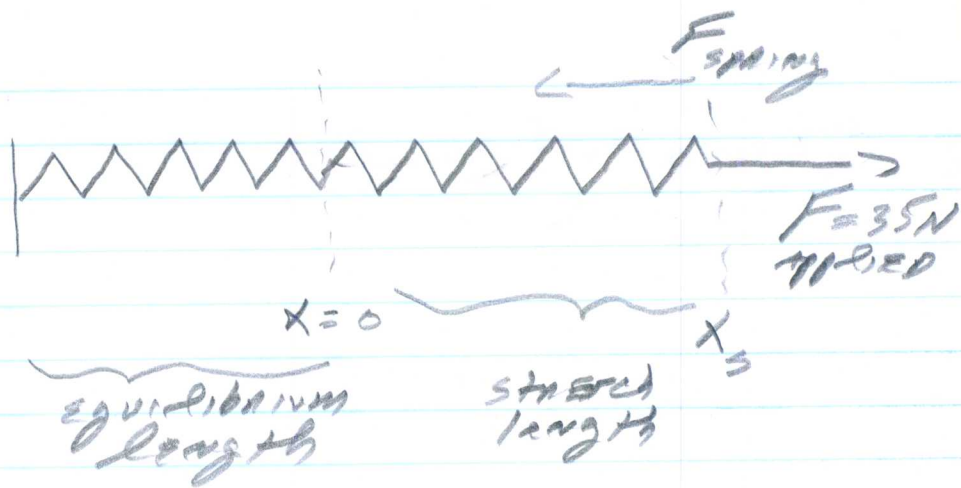 F spring
F = 35N
applied
x = 0
x s
equilibrium
length
stretch
length